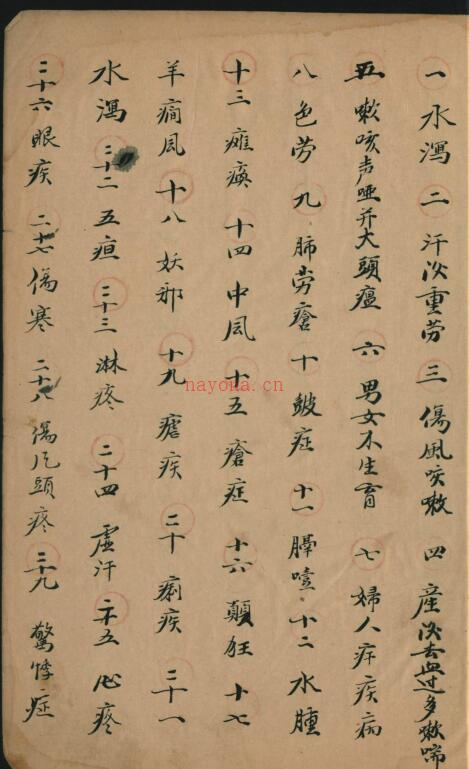 一 水瀉 二 汗次重劳 三 傷風咳嗽 四 産次去血过多嗽喘
五 嗽咳声哑并大頭瘟 六 男女不生育 七 婦人疾病
八 色劳 九 肺劳瘡 十 皷症 十一 膈噎 十二 水腫
十三 瘫痪 十四 中风 十五 瘡症 十六 顛狂 十七
羊癇风 十八 妖邪 十九 瘧疾 二十 痢疾 二十一
水瀉 二十二 五疸 二十三 淋疼 二十四 虚汗 二十五 心疼
二十六 眼疾 二十七 傷寒 二十八 傷风頭疼 二十九 驚悸症
nayona.cn